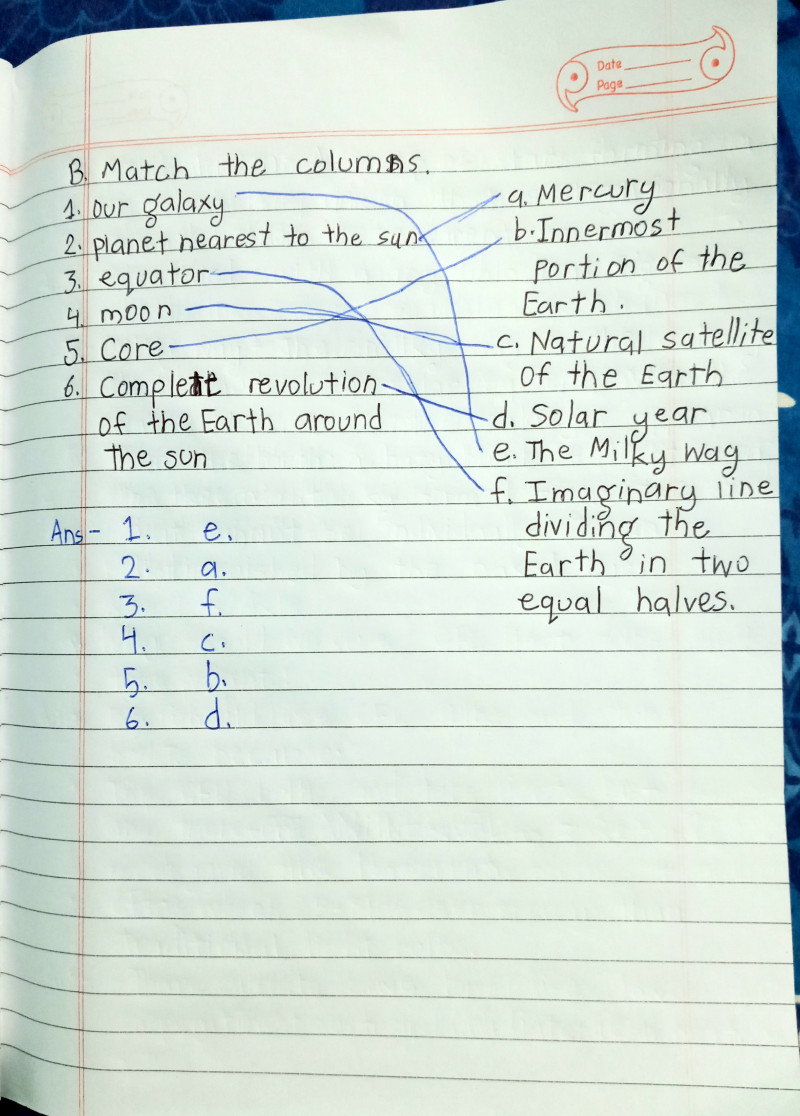 Date
Page
B. Match the columns.
1. Our galaxy
2. planet nearest to the sun
3. equator
4. moon
5. Core
6. Complete revolution
of the Earth around
the sun
a. Mercury
b. Innermost
portion of the
Earth.
c. Natural satellite
of the Earth
d. Solar year
e. The Milky Way
f. Imaginary line
dividing the
Earth in two
equal halves.
Ans- 1. e.
2. a.
3. f.
4. c.
5. b.
6. d.